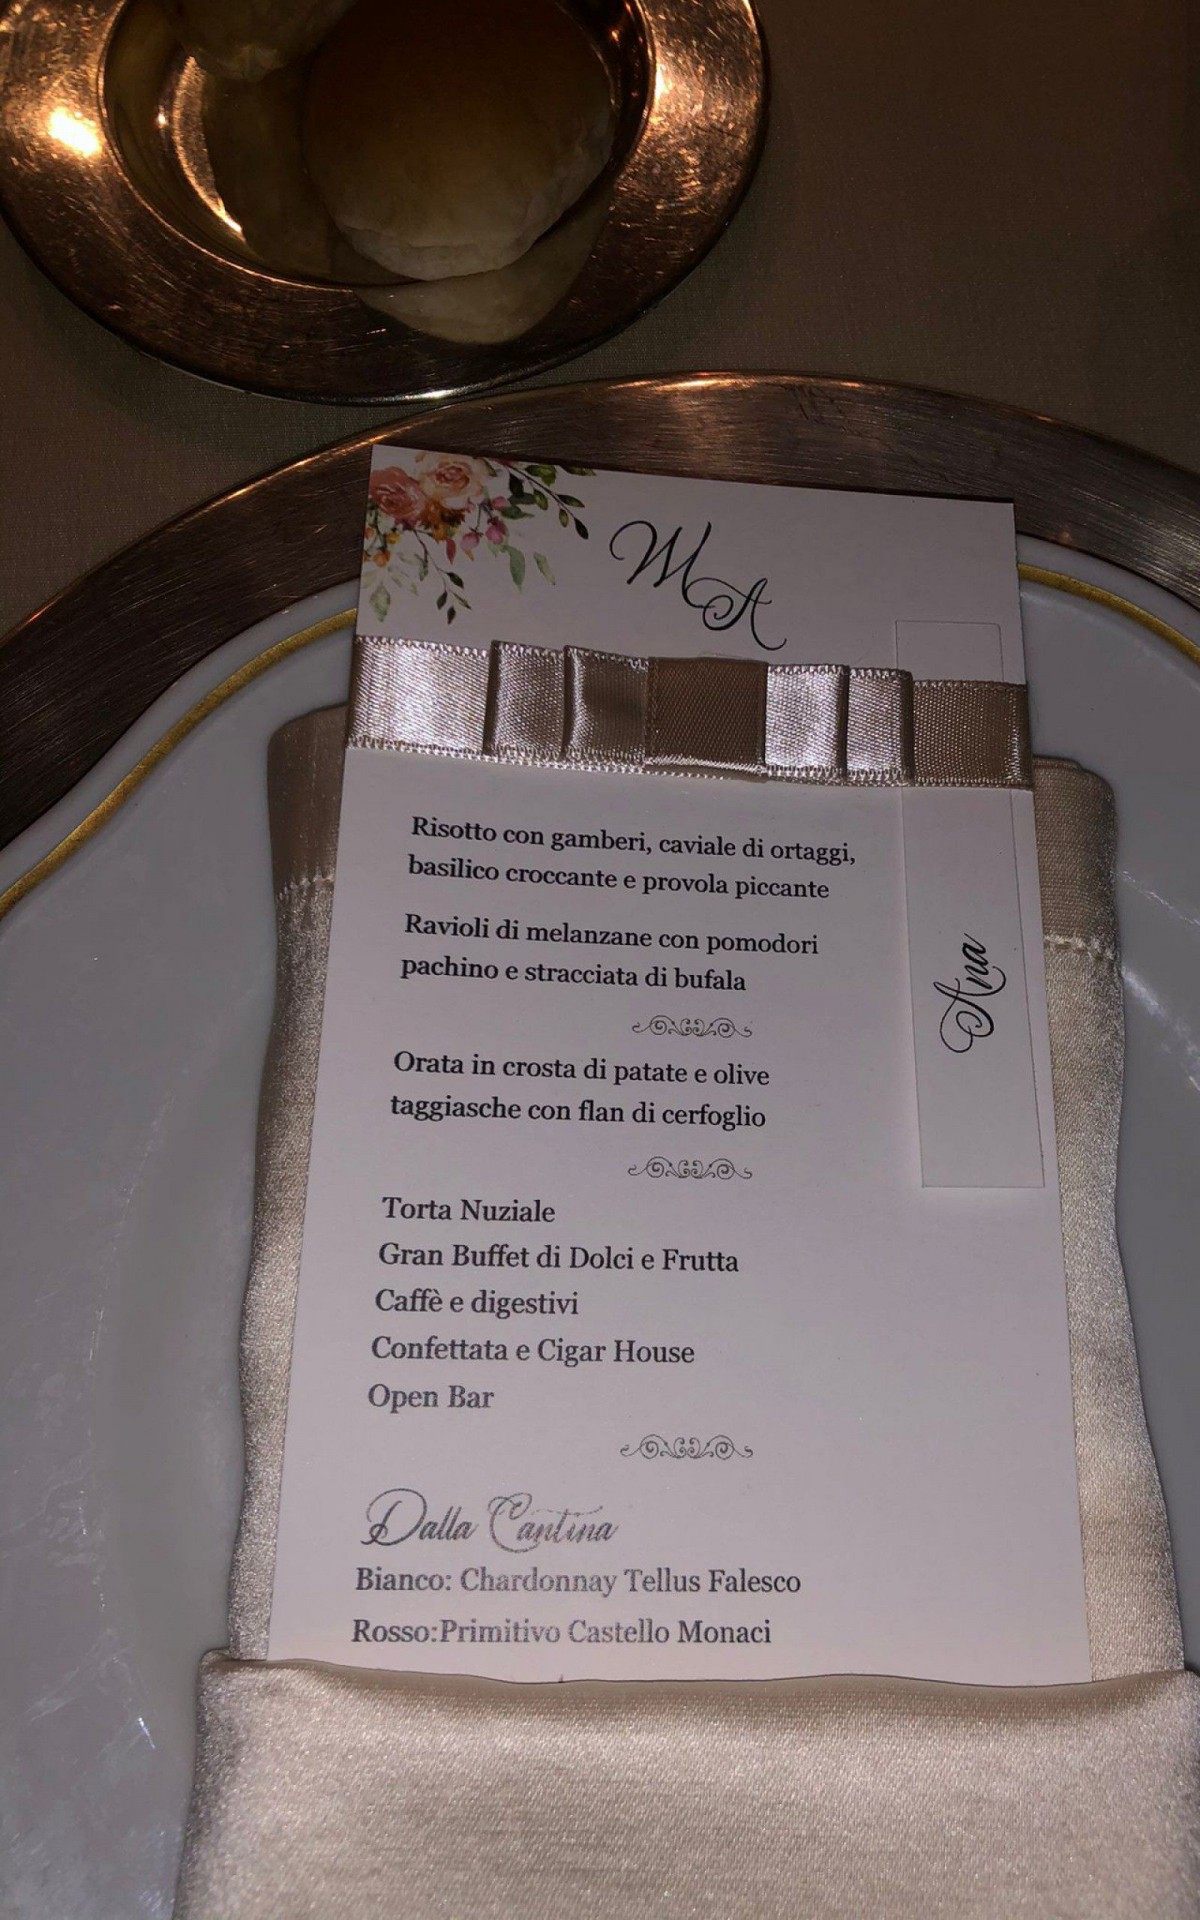 WA
Risotto con gamberi, caviale di ortaggi,
basilico croccante e provola piccante
Ravioli di melanzane con pomodori
pachino e stracciata di bufala
Orata in crosta di patate e olive
taggiasche con flan di cerfoglio
Torta Nuziale
Gran Buffet di Dolci e Frutta
Caffè e digestivi
Confettata e Cigar House
Open Bar
Dalla Cantina
Bianco: Chardonnay Tellus Falesco
Rosso:Primitivo Castello Monaci
Ana